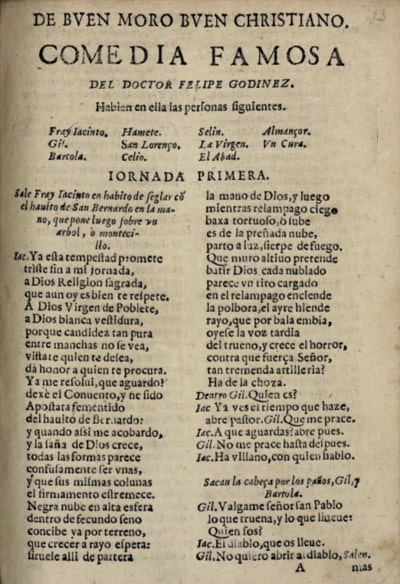 DE BVEN MORO BVEN CHRISTIANO.
COMEDIA FAMOSA
DEL DOCTOR FELIPE GODINEZ.
Hablan en ella las personas siguientes.
Fray Iacinto. Hamete. Selin. Almançor.
Gil. San Lorenço. La Virgen. Vn Cura.
Bartola. Celio. El Abad.
IORNADA PRIMERA.
Sale Fray Iacinto en habito de seglar cõ
el hauito de San Bernardo en la ma-
no, que pone luego sobre vn
arbol, o monteci-
llo.
Iac. Ya esta tempestad promete
triste fin a mi jornada,
a Dios Religion sagrada,
que aun oy es bien te respete.
A Dios Virgen de Poblete,
a Dios blanca vestidura,
porque candidez tan pura
entre manchas no se vea,
vistate quien te desea,
dà honor a quien te procura.
Ya me resolui, que aguardo?
dexè el Conuento, y he sido
Apostata fementido
del hauito de Bernardo:
y quando assi me acobardo,
y la saña de Dios crece,
todas las formas parece
confusamente ser vnas,
y que sus mismas colunas
el firmamento estremece.
Negra nube en alta esfera
dentro de fecundo seno
concibe ya por terreno,
que crecer a rayo espera:
siruele alli de partera
la mano de Dios, y luego
mientras relampago ciego
baxa tortuoso, o sube
es de la preñada nube,
parto a luz, sierpe de fuego.
Que muro altiuo pretende
batir Dios, cada nublado
parece vn tiro cargado
en el relampago enciende
la polbora, el ayre hiende
rayo, que por bala embia,
oyese la voz tardia
del trueno, y crece el horror,
contra que fuerça Señor,
tan tremenda artilleria?
Ha de la choza.
Dentro Gil. Quien es?
Iac. Ya ves el tiempo que haze,
abre pastor. Gil. Que me prace.
Iac. A que aguardas? abre pues.
Gil. No me prace hasta despues.
Iac. Ha villano, con quien hablo.
Sacan la cabeça por los paños, Gil, y
Bartola.
Gil. Valgame señor san Pablo
lo que truena, y lo que llueue:
Quien sos?
Iac. El diablo, que os lleue.
Gil. No quiero abrir al diablo, Salen.
A mas